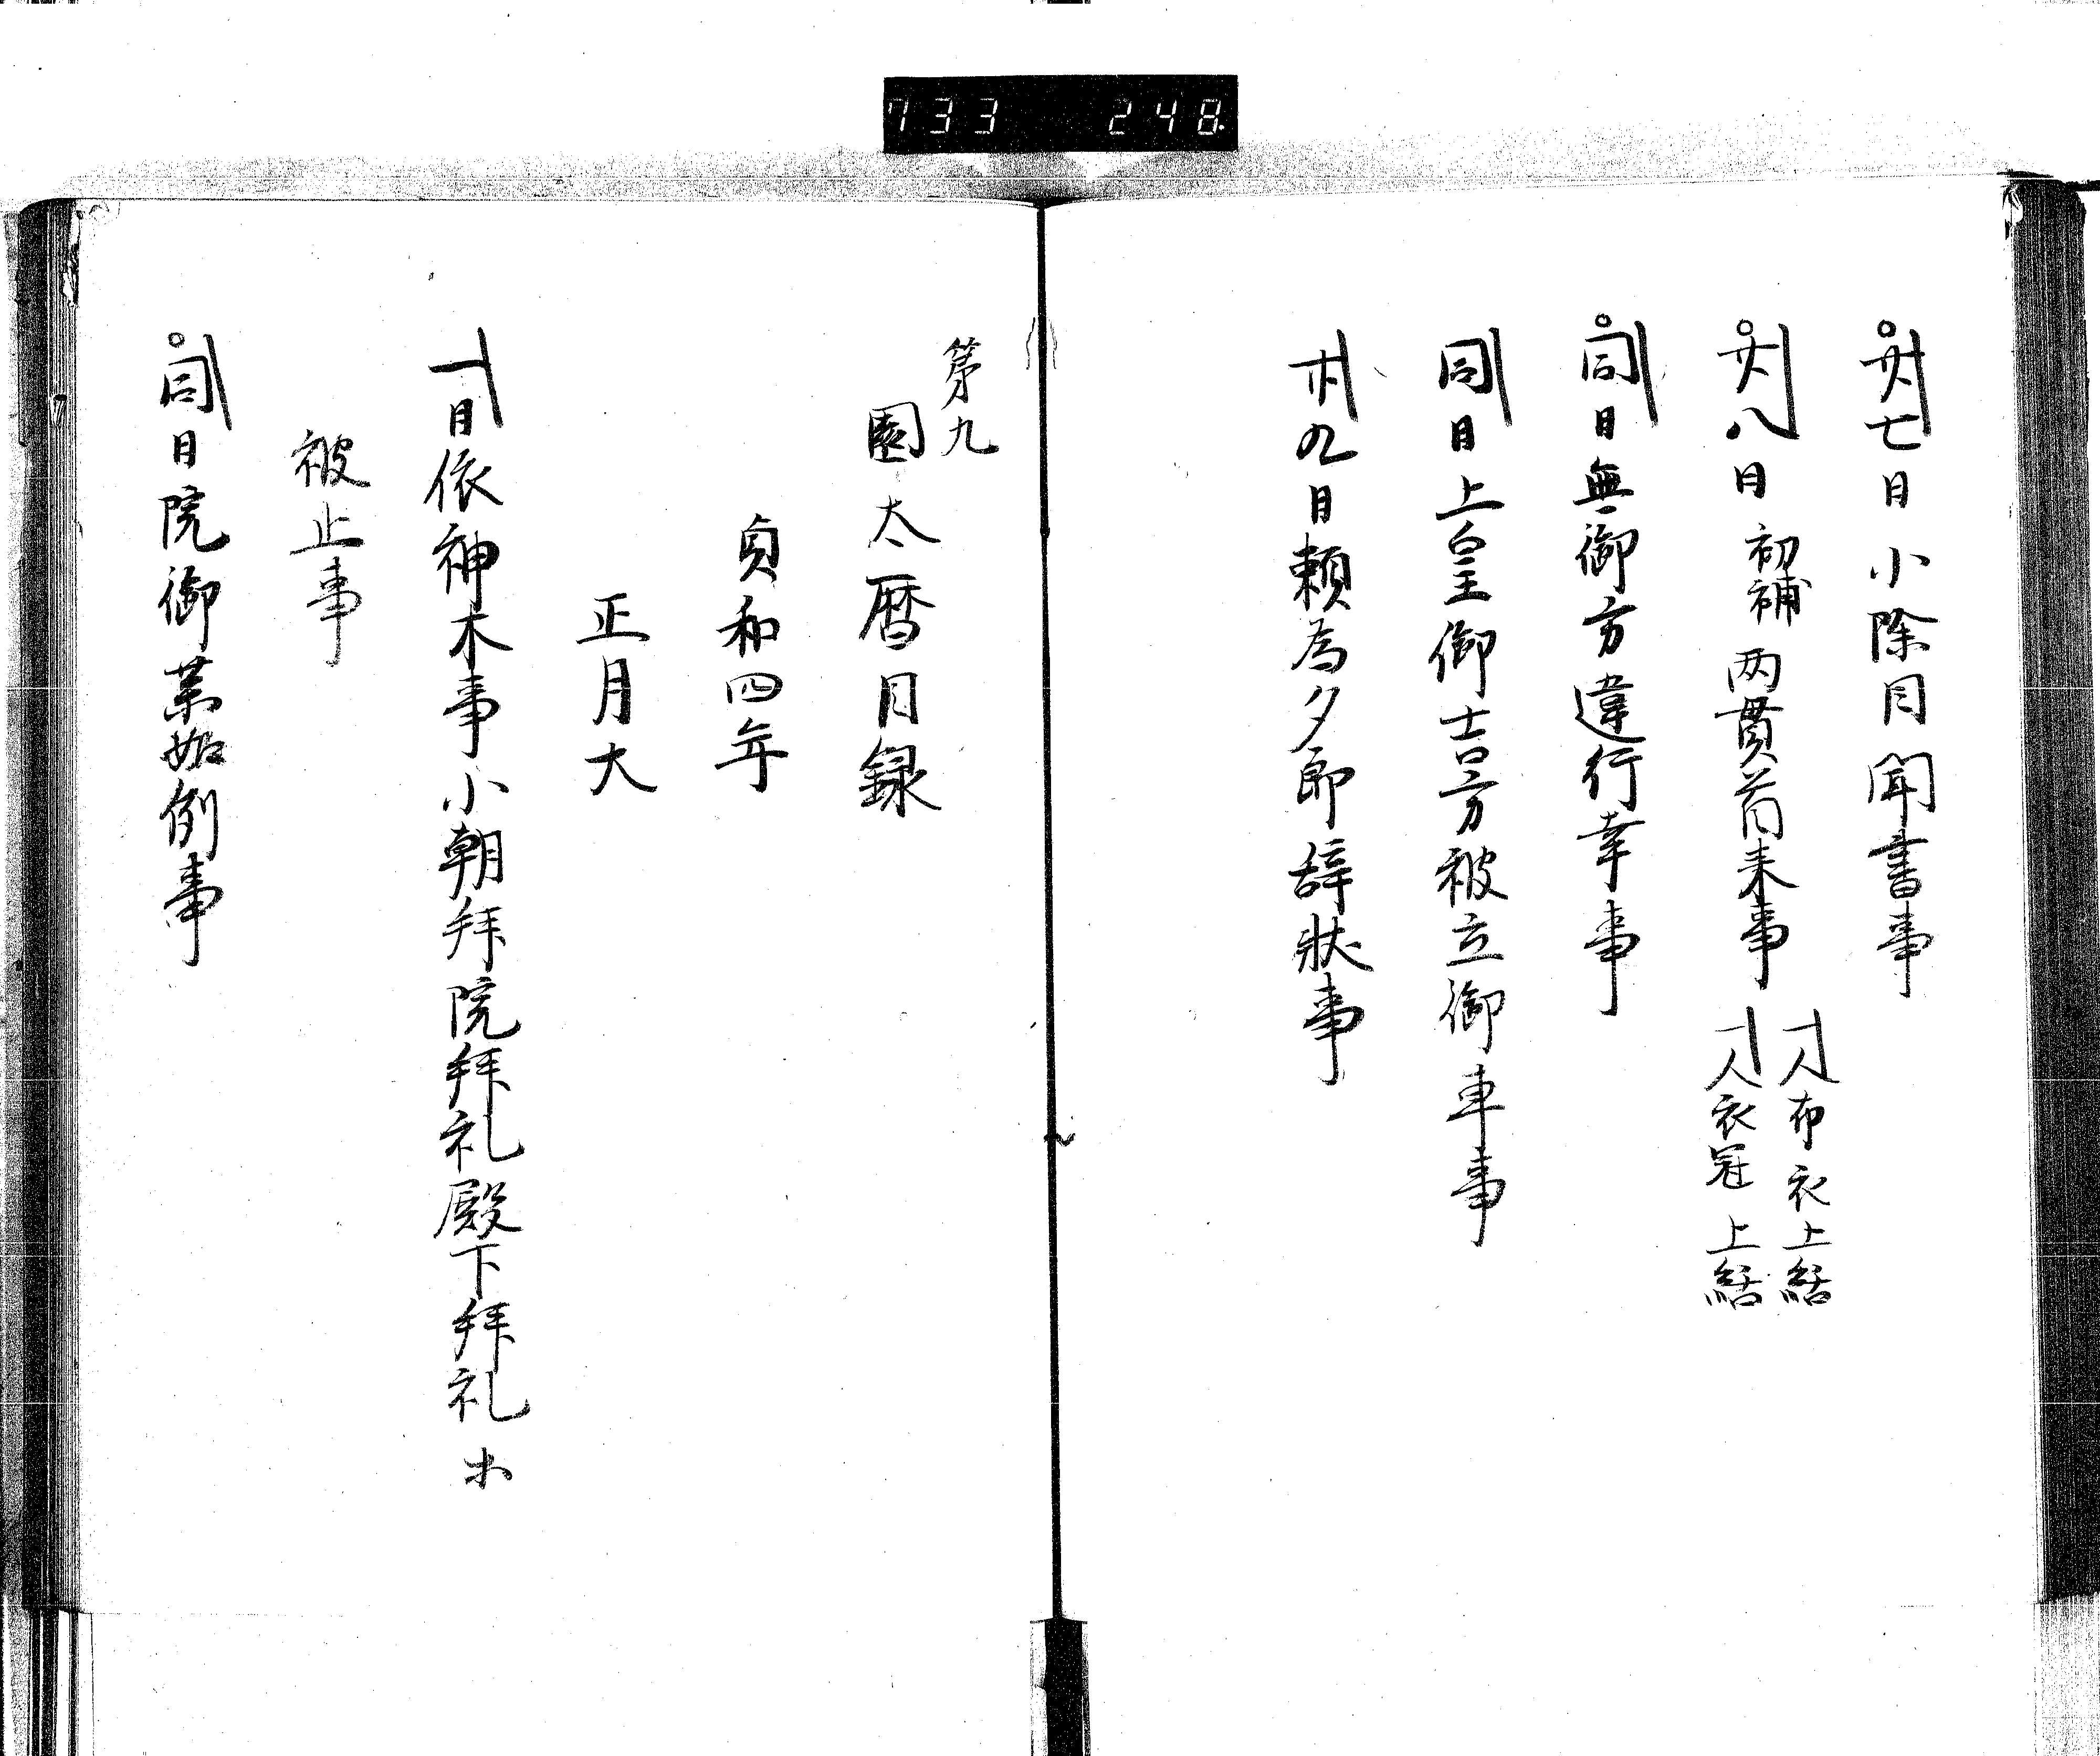 733 248
廿七日小除目聞書事
廿八日初補両貫首来事 一人布衣上結
一人衣冠上結
同日無御方違行幸事
同日上皇御吉方被立御車事
廿九日頼為夕郎辞状事
第九
園太暦目録
貞和四年
正月大
一日依神木事小朝拝院拝礼殿下拝礼木
被止事
同日院御薬如例事